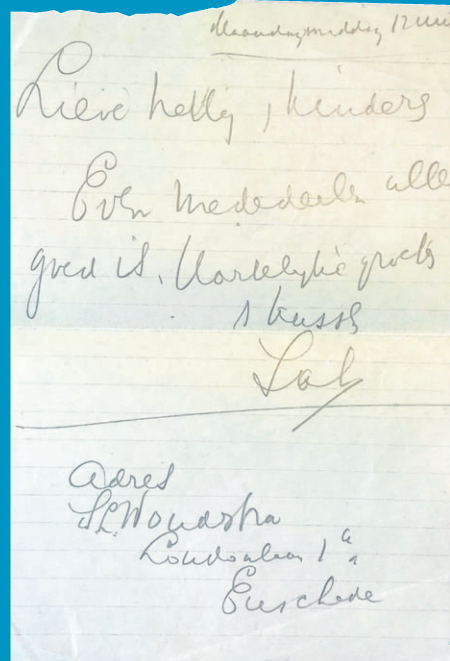 Maandagmiddag 12 uur
Lieve Nelly, kinders
Even mededeelen alle
goed is. Hartelijke groets
s kussen
Sal
Adres
S.L. Woudstra
1 a
Enschede